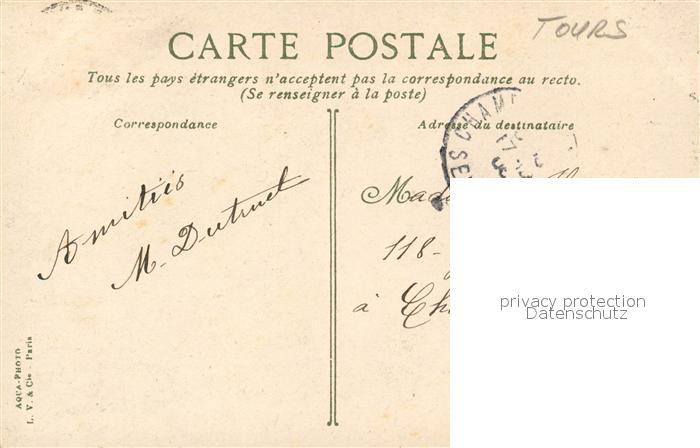 TOURS
CARTE POSTALE
Tous les pays étrangers n'acceptent pas la correspondance au recto.
(Se renseigner à la poste)
Correspondance
Adresse du destinataire
Amitiés
M. Dutruel
118-
à Ch
privacy protection
Datenschutz
AQUA-PHOTO
L. V. & Cie - Paris